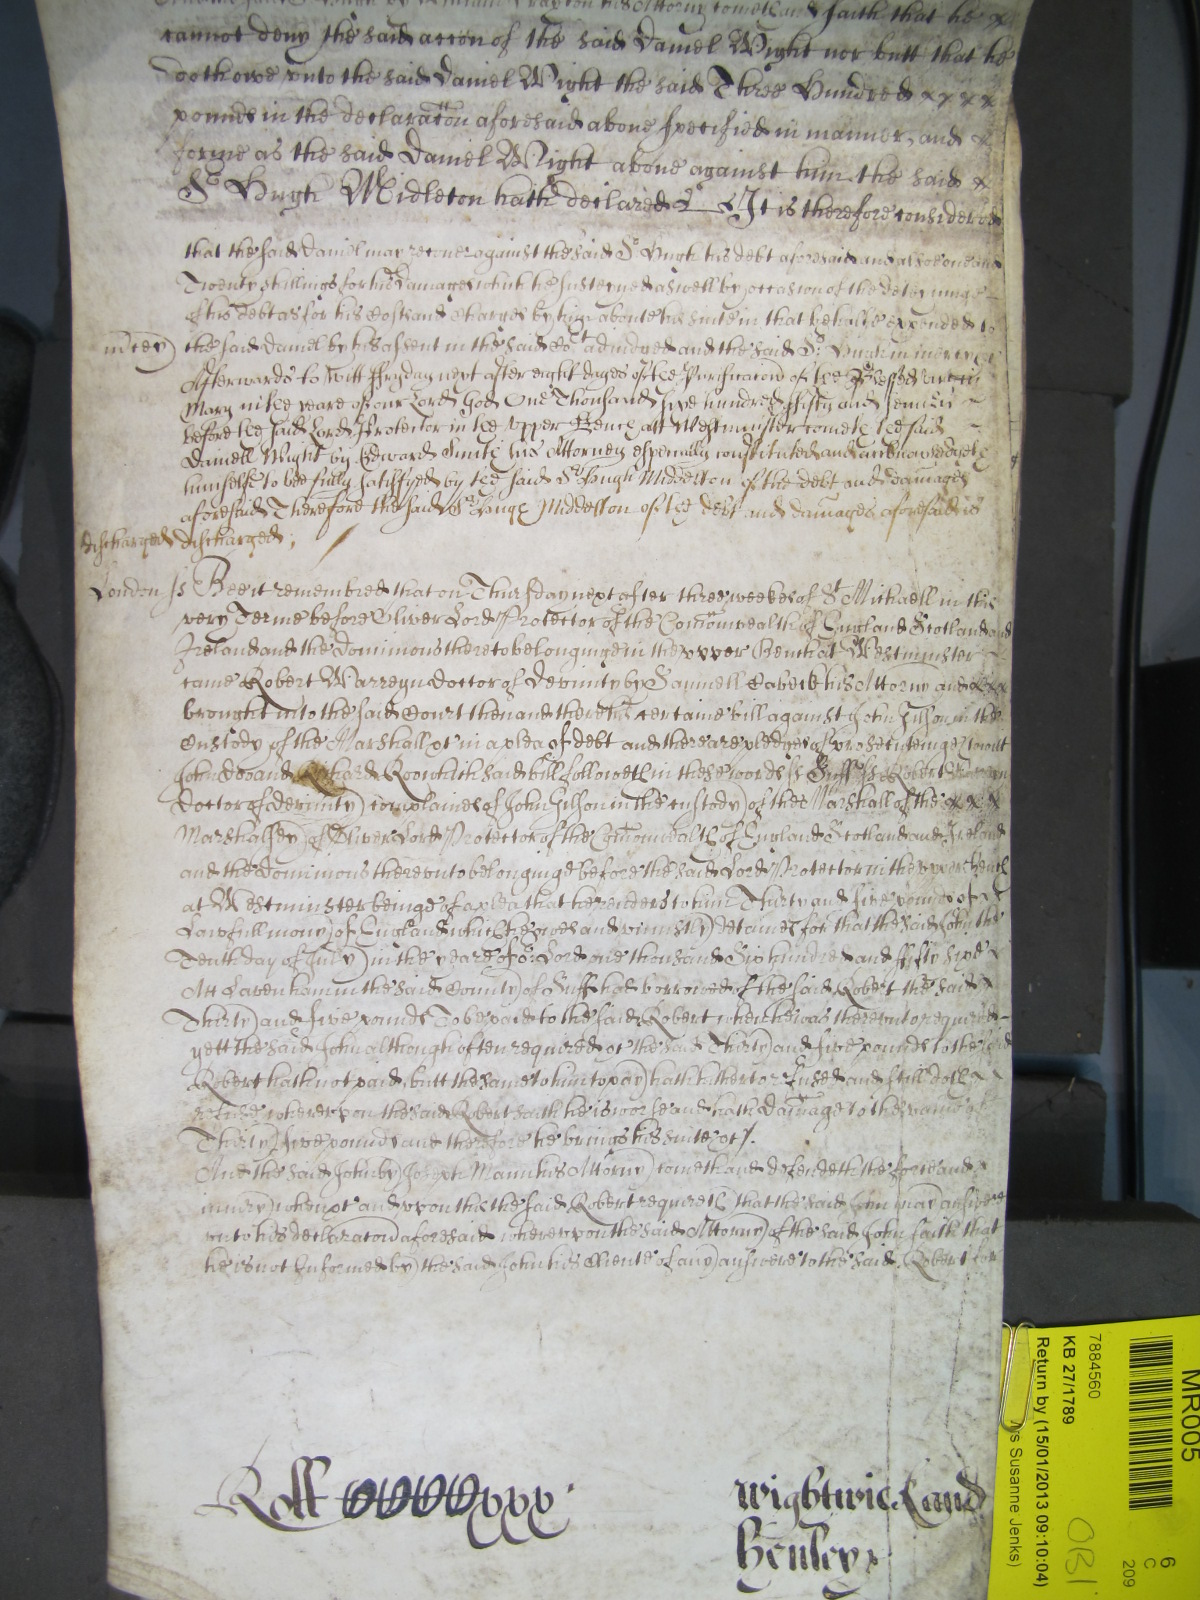 his Attorny cometh and saith that he x
cannot deny the said accon of the said Daniel Wight nor butt that he
doth owe unto the said Daniel Wight the said Three Hundred x x x x
pounds in the declaracon aforesaid above specified in manner and x
forme as the said Daniel Wright above against him the said x
Sr Hugh Midleton hath declared It is therefore considered
that the said Daniel may recover against the said Sr Hugh his debt aforesaid and alsoe
Twenty shillings for his damages which he susteyned aswell by occasion of the deteyninge
of his debt as for his Costs and charges by him about his suite in that behalfe expended to
mercy the said Daniel by his assent in the said Cot adiudged and the said Sr Hugh in mercy &c
Afterwards to witt ffryday next after eight dayes of the Purificacon of the Blessed
Mary in the yeare of our Lord God One Thousand six hundred ffifty and seaven
before the said Lord Protector in the upper Bench att Westminster cometh the said
Daniell Wight by Edward Smith his Attorney especially constituted and acknowledgeth
himselfe to bee fully satisfyed by the said Sr Hugh Middelton of the debt and damages
aforesaid Therefore the said Sr Hugh Middelton of the debt and damages aforesaid is
discharged discharged
London ss Bee it remembred that on Thursday next after three weekes of St Michaell in this
very Terme before Oliver Lord Protector of the Comonwealth of England Scotland and
Ireland and the Dominions thereto belonginge in the upper Bench at Westminster
came Robert Warreyn doctor of devinity by Samuell his Attorny and x x x
brought into the said Court then and there his certaine bill against John Gilson in the
Custody of the Marshall &c in a plea of debt and there are pledges of prosecutinge to witt
John Doo and Richard Roo which said bill followeth in these words ss Suff ss Robert
doctor of devinity complaines of John Gilson in the custody of the Marshall of the x x x
Marshalsey of Oliver Lord Protector of the Comonwealth of England Scotland and Ireland
and the Dominions thereunto belonginge before the said Lord Protector in the upper Bench
at Westminster beinge of a plea that he renders to him Thirty and five pounds of
Lawfull mony of England which he owes and uniustly detaines for that the said John the
Tenth day of July in the yeare of or Lord one thousand Six hundred and ffifty sixe
Att Lavenham in the said County of Suff had borrowed of the said Robert the said
Thirty and five pounds To be paid to the said Robert when he was thereunto required
yett the said John although often required &c the said Thirty and five pounds to the said
Robert hath not paid, butt the same to him to pay hath hitherto refused and still doth
refuse whereupon the said Robert saith he is worse and hath damage to the value of
Thirty five pounds and therefore he brings his suite &c
And the said John by Joseph Mann his Attorny cometh and defendeth the force and
iniury when &c and upon this the said Robert requireth that the said John may answere
unto his declaracon aforesaid whereupon the said Attorny of the said John saith that
he is not Informed by the said John his Cliente of any answere to the said Robert for
Roll xxx
Wightwick and
Henley
MR005
6
C
209
7884560
KB 27/1789
Return by (15/01/2013 09:10:04)
Susanne Jenks)
OB1